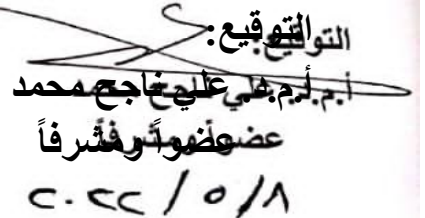 التوقيع:
أ.م.د. علي ناجح محمد
عضواً ومشرفاً
٢٠٢٢ / ٥ / ٨